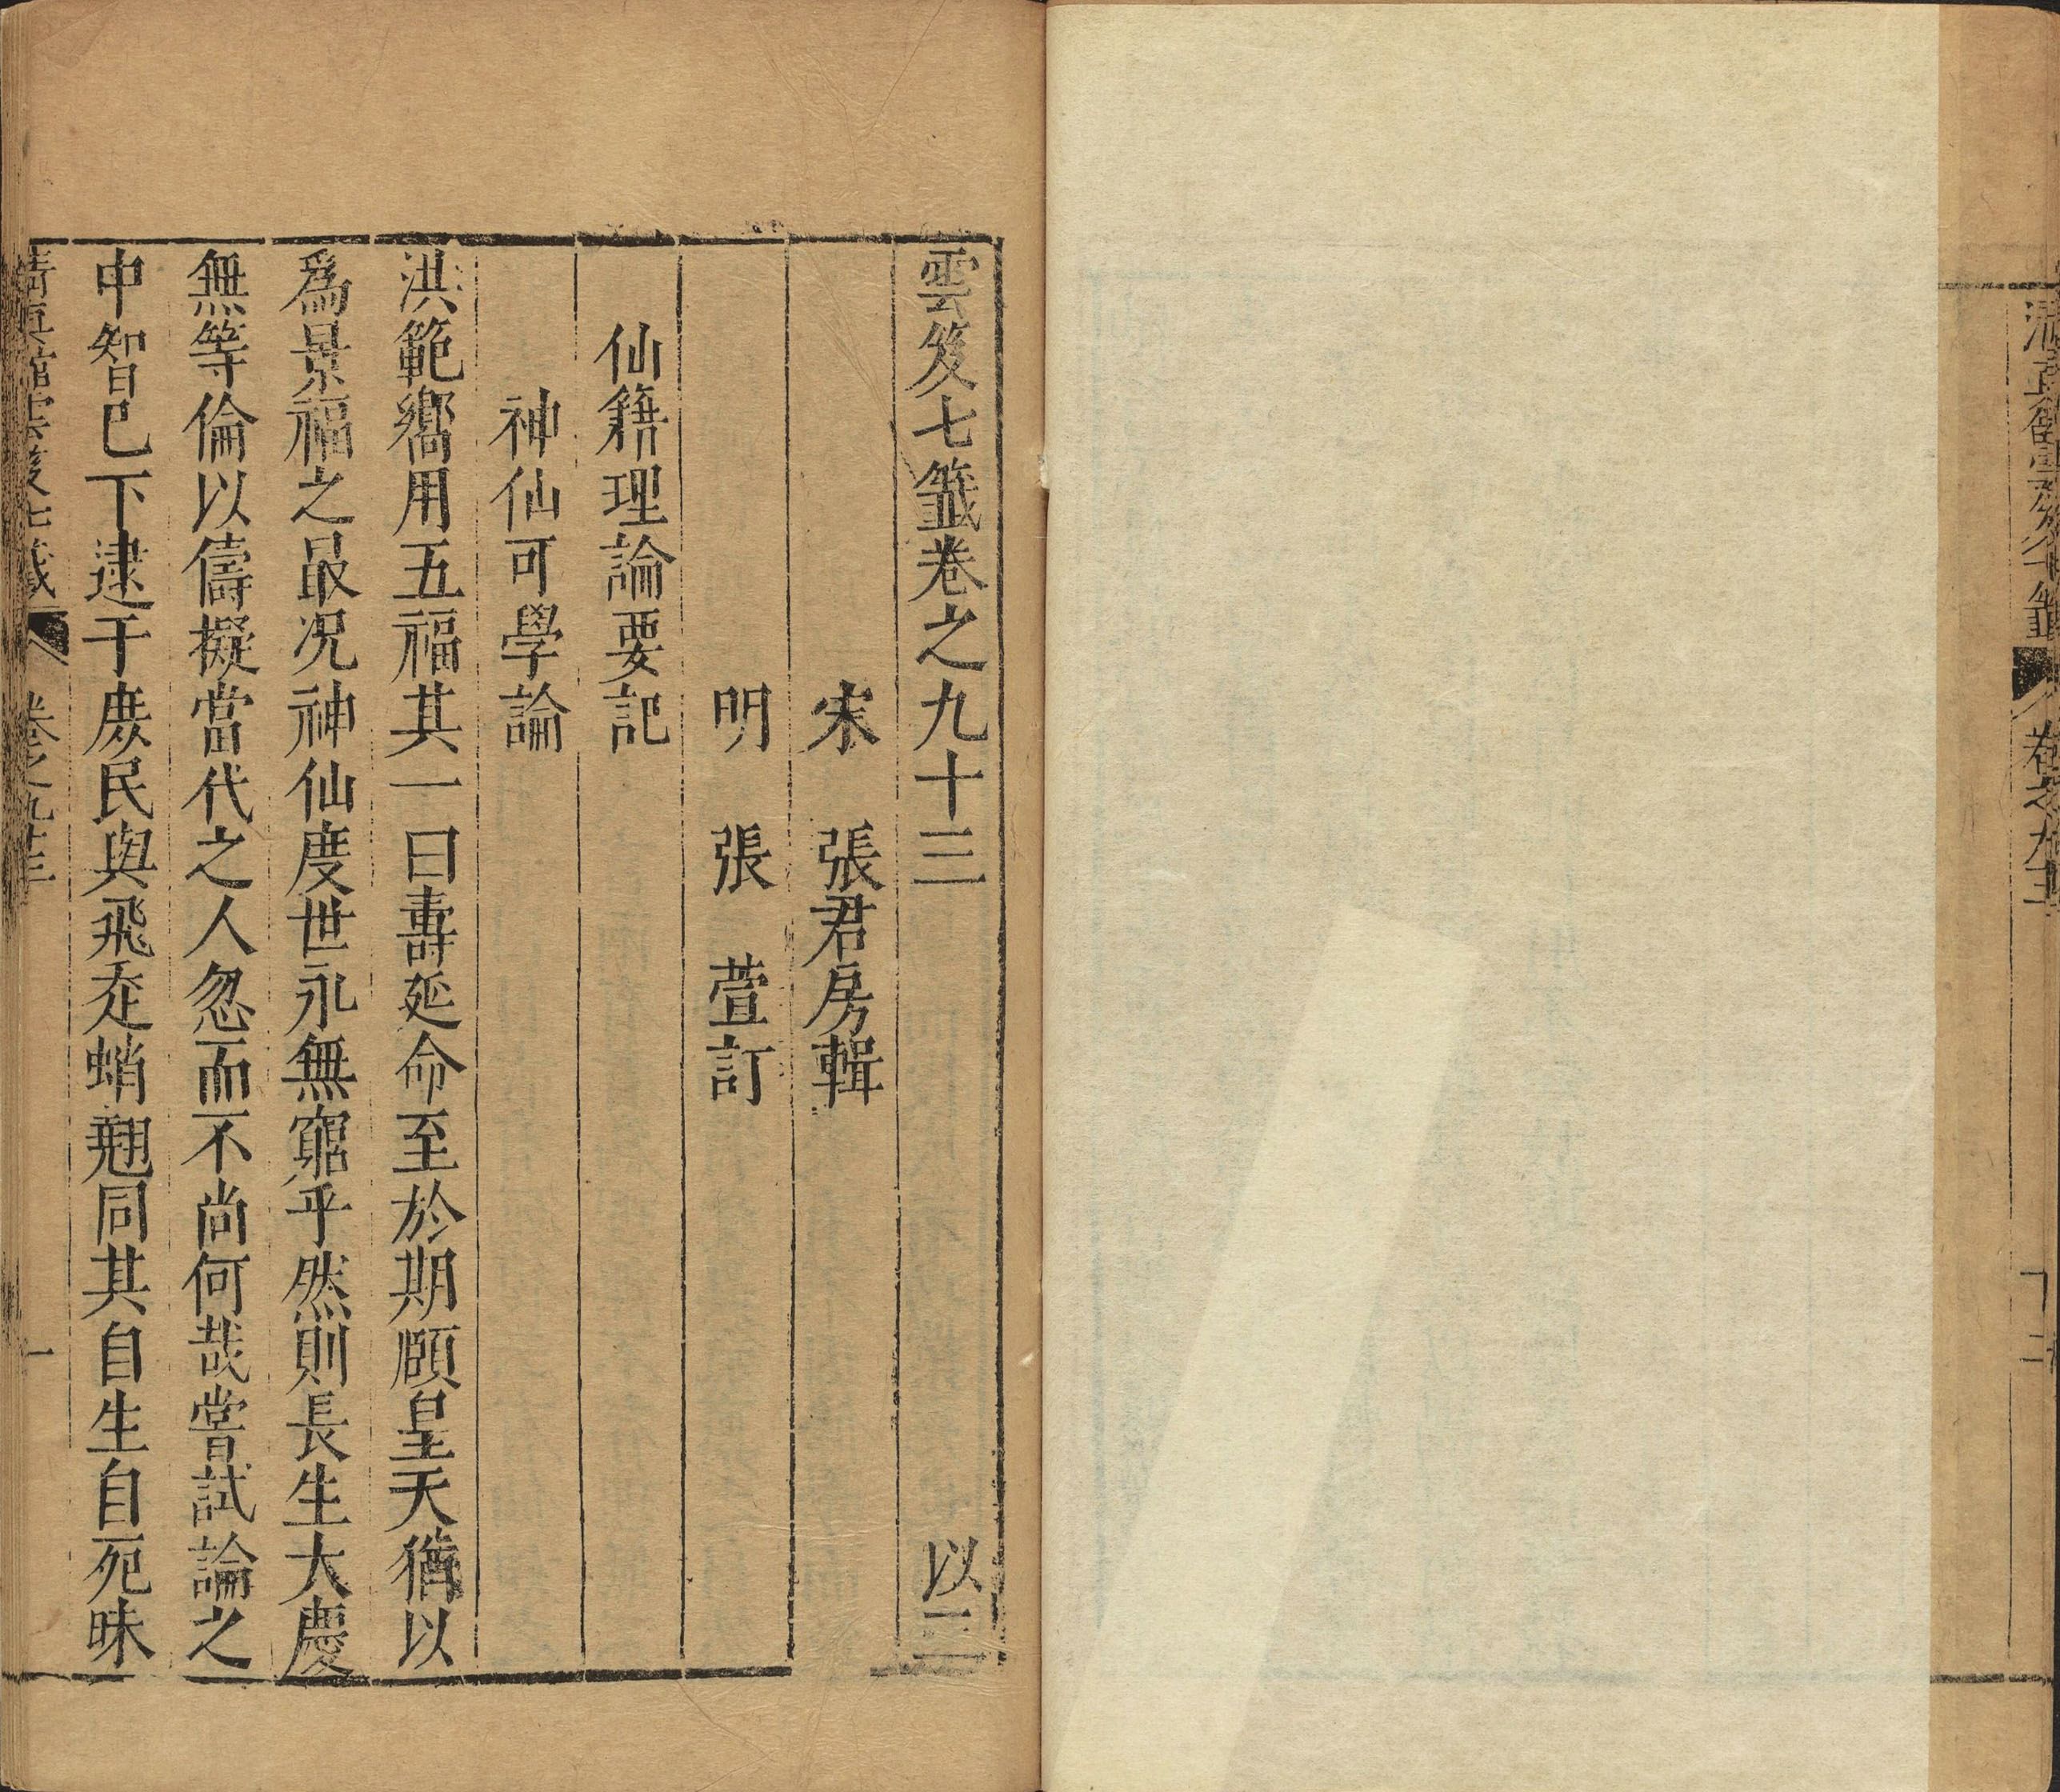 雲笈七籤卷之九十三 以三
宋 張君房輯
明 張 萱訂
仙籍理論要記
神仙可學論
洪範嚮用五福其一曰壽延命至於期頤皇天猶以
爲景福之最况神仙度世永無窮乎然則長生大慶
無等倫以儔擬當代之人忽而不尚何哉嘗試論之
中智已下逮于庶民與飛走蛸翹同其自生自死昧
清真館雲笈七籤 卷之九十三 一